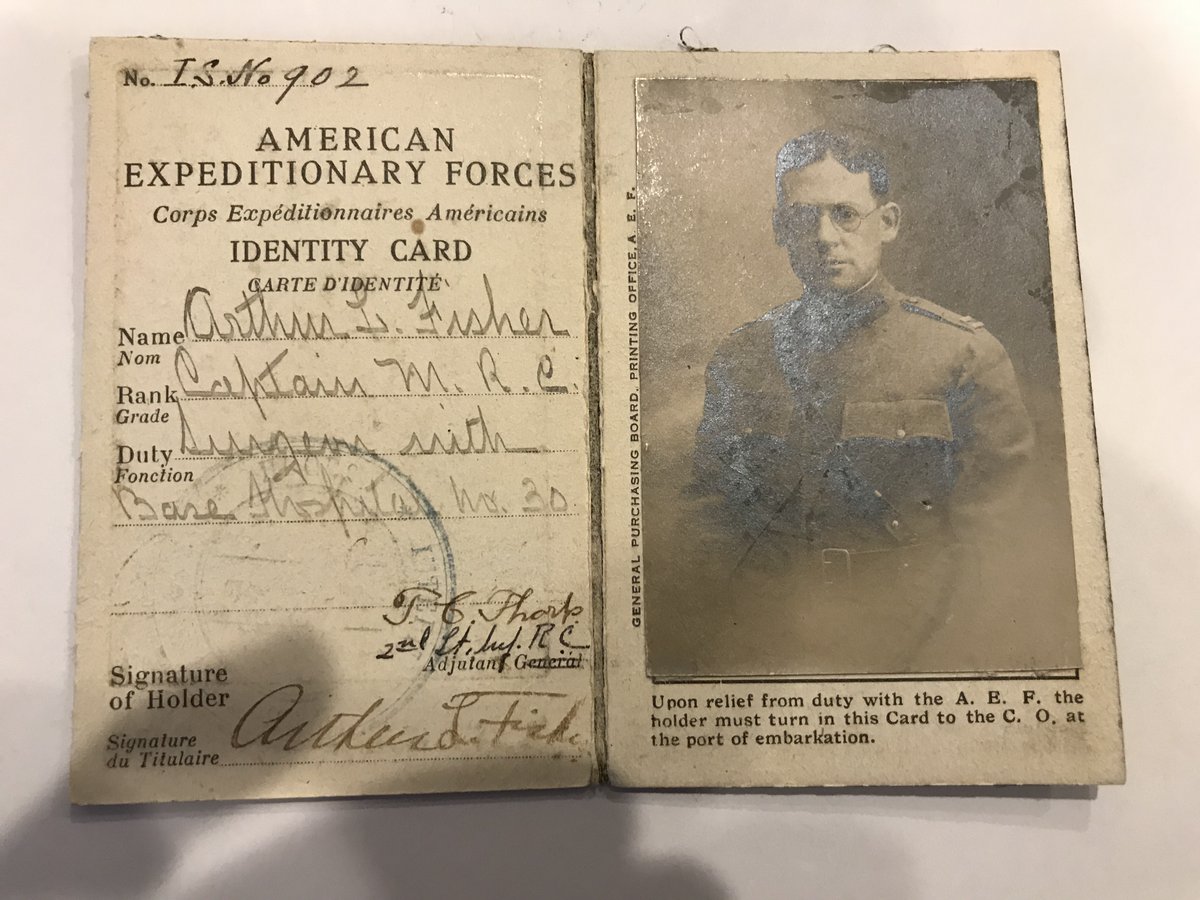 No. I.S. No 902
AMERICAN
EXPEDITIONARY FORCES
Corps Expéditionnaires Américains
IDENTITY CARD
CARTE D'IDENTITÉ
Name Arthur L. Fisher
Nom
Rank Captain M. R. C.
Grade
Duty Surgeon with
Fonction
Base Hospital No. 30
T. C. Thorp
2nd Lt, Inf. R. C.
Adjutant General
Signature
of Holder
Arthur L. Fish
Signature
du Titulaire
GENERAL PURCHASING BOARD, PRINTING OFFICE, A. E. F.
Upon relief from duty with the A. E. F. the
holder must turn in this Card to the C. O. at
the port of embarkation.